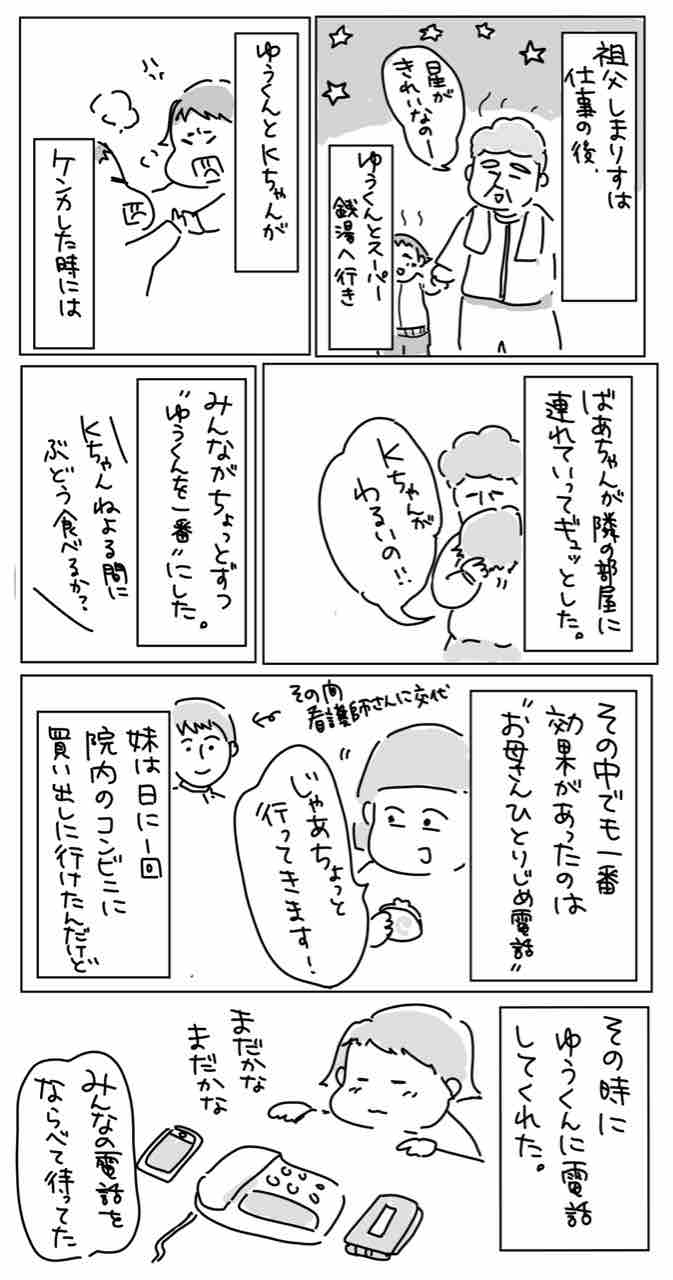 祖父しまりすは
仕事の後、
星が
きれいなのー
ゆうくんとスーパー
銭湯へ行き
ゆうくんとKちゃんが
ケンカした時には
ばあちゃんが隣の部屋に
連れていってギュッとした。
Kちゃんが
わるいの!!
みんながちょっとずつ
“ゆうくんを一番”にした。
Kちゃんねよる間に
ぶどう食べるか?
その中でも一番
効果があったのは
“お母さんひとりじめ電話”
その間
看護師さんに交代
じゃあちょっと
行ってきます!
妹は日に1回
院内のコンビニに
買い出しに行けたんだけど
その時に
ゆうくんに電話
してくれた。
まだかな
まだかな
みんなの電話を
ならべて待ってた